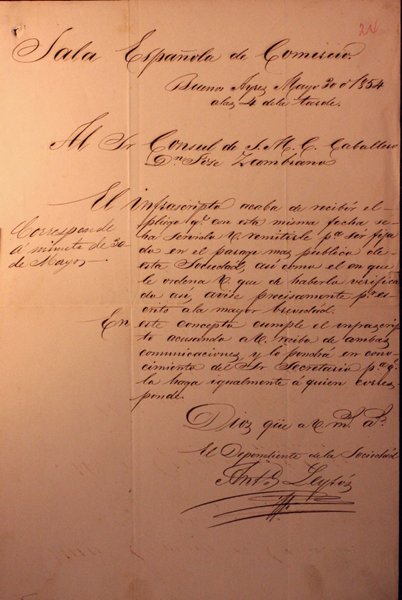 24
Sala Española de Comercio.
Buenos Ayres Mayo 20 de 1854
a las 4 de la tarde.
Al Sr Consul de S. M. C. Caballero
Dn Jose Zambrano
El infrascripto acaba de recibir el
pliego qe. en esta misma fecha se
ha servido V. remitirle pa. ser fija
do en el paraje mas publico de
esta Sociedad, asi como el en que
le ordena V. que de haberlo verifica
do asi, avise precisamente pr. es
crito a la mayor brevedad.
Corresponde
á minuta de 20
de Mayo
En este concepto cumple el infrascrip
to acusando a V. recibo de ambas
comunicaciones, y lo pondrá en cono
cimiento del Sr Secretario pa. qe.
lo haga igualmente á quien corres
ponde.
Dios gue a V. ms. as.
El Dependiente de la Sociedad